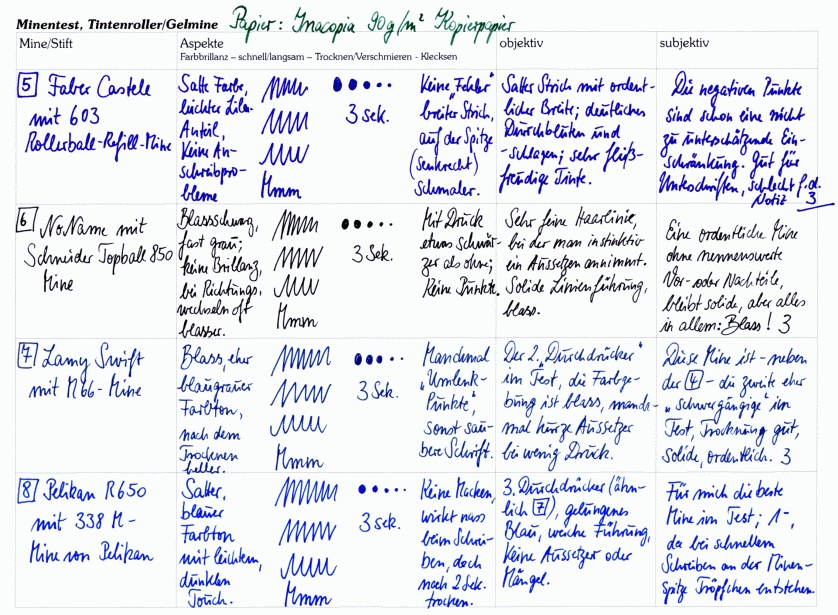 Minentest, Tintenroller/Gelmine Papier: Inacopia 90g/m² Kopierpapier
Mine/Stift
Aspekte
Farbbrillanz – schnell/langsam – Trocknen/Verschmieren - Klecksen
objektiv
subjektiv
5 Faber Castele
mit 603
Rollerball-Refill-Mine
Satte Farbe,
leichter Lila-
Anteil,
Keine An-
schreibpro-
bleme
Mmm
3 Sek.
Keine "Fehler"
breiter Strich,
auf der Spitze
(senkrecht)
schmaler.
Satter Strich mit ordent-
licher Breite; deutliches
Durchbluten und
-schlagen; sehr fließ-
freudige Tinte.
Die negativen Punkte
sind schon eine nicht
zu unterschätzende Ein-
schränkung. Gut für
Unterschriften, schlecht f.d.
Notiz 3
6 NoName mit
Schneider Topball 850
Mine
Blassschwarz,
fast grau;
keine Brillanz,
bei Richtungs-
wechseln oft
blasser.
Mmm
3 Sek.
Mit Druck
etwas schwär-
zer als ohne;
Keine Punkte.
Sehr feine Haarlinie,
bei der man instinktiv
ein Aussetzen annimmt.
Solide Linienführung,
blass.
Eine ordentliche Mine
ohne nennenswerte
Vor- oder Nachteile,
bleibt solide, aber alles
in allem: Blass! 3
7 Lamy Swift
mit M66-Mine
Blass, eher
blaugrauer
Farbton,
nach dem
Trocknen
heller.
Mmm
3 Sek.
Manchmal
"Umlenk-
Punkte",
sonst sau-
bere Schrift.
Der 2. "Durchdrücker"
im Test, die Farbge-
bung ist blass, manch-
mal kurze Aussetzer
bei wenig Druck.
Diese Mine ist - neben
der 4 - die zweite eher
"schwergängige" im
Test, Trocknung gut,
Solide, ordentlich. 3
8 Pelikan R650
mit 338 M-
Mine von Pelikan
Satter,
blauer
Farbton
mit leichtem,
dunklen
Touch.
Mmm
3 Sek.
Keine Macken,
wirkt nass
beim Schrei-
ben, doch
nach 2 Sek.
trocken.
3. Durchdrücker (ähn-
lich 7), gelungenes
Blau, weiche Führung,
Keine Aussetzer oder
Mängel.
Für mich die beste
Mine im Test; 1-,
da bei schnellem
Schreiben an der Minen-
spitze Tröpfchen entstehen.